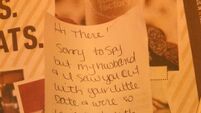 S.
ATS.
Hi There!
Sorry to spy
but my husband
& I saw you out
with your little
date & were so